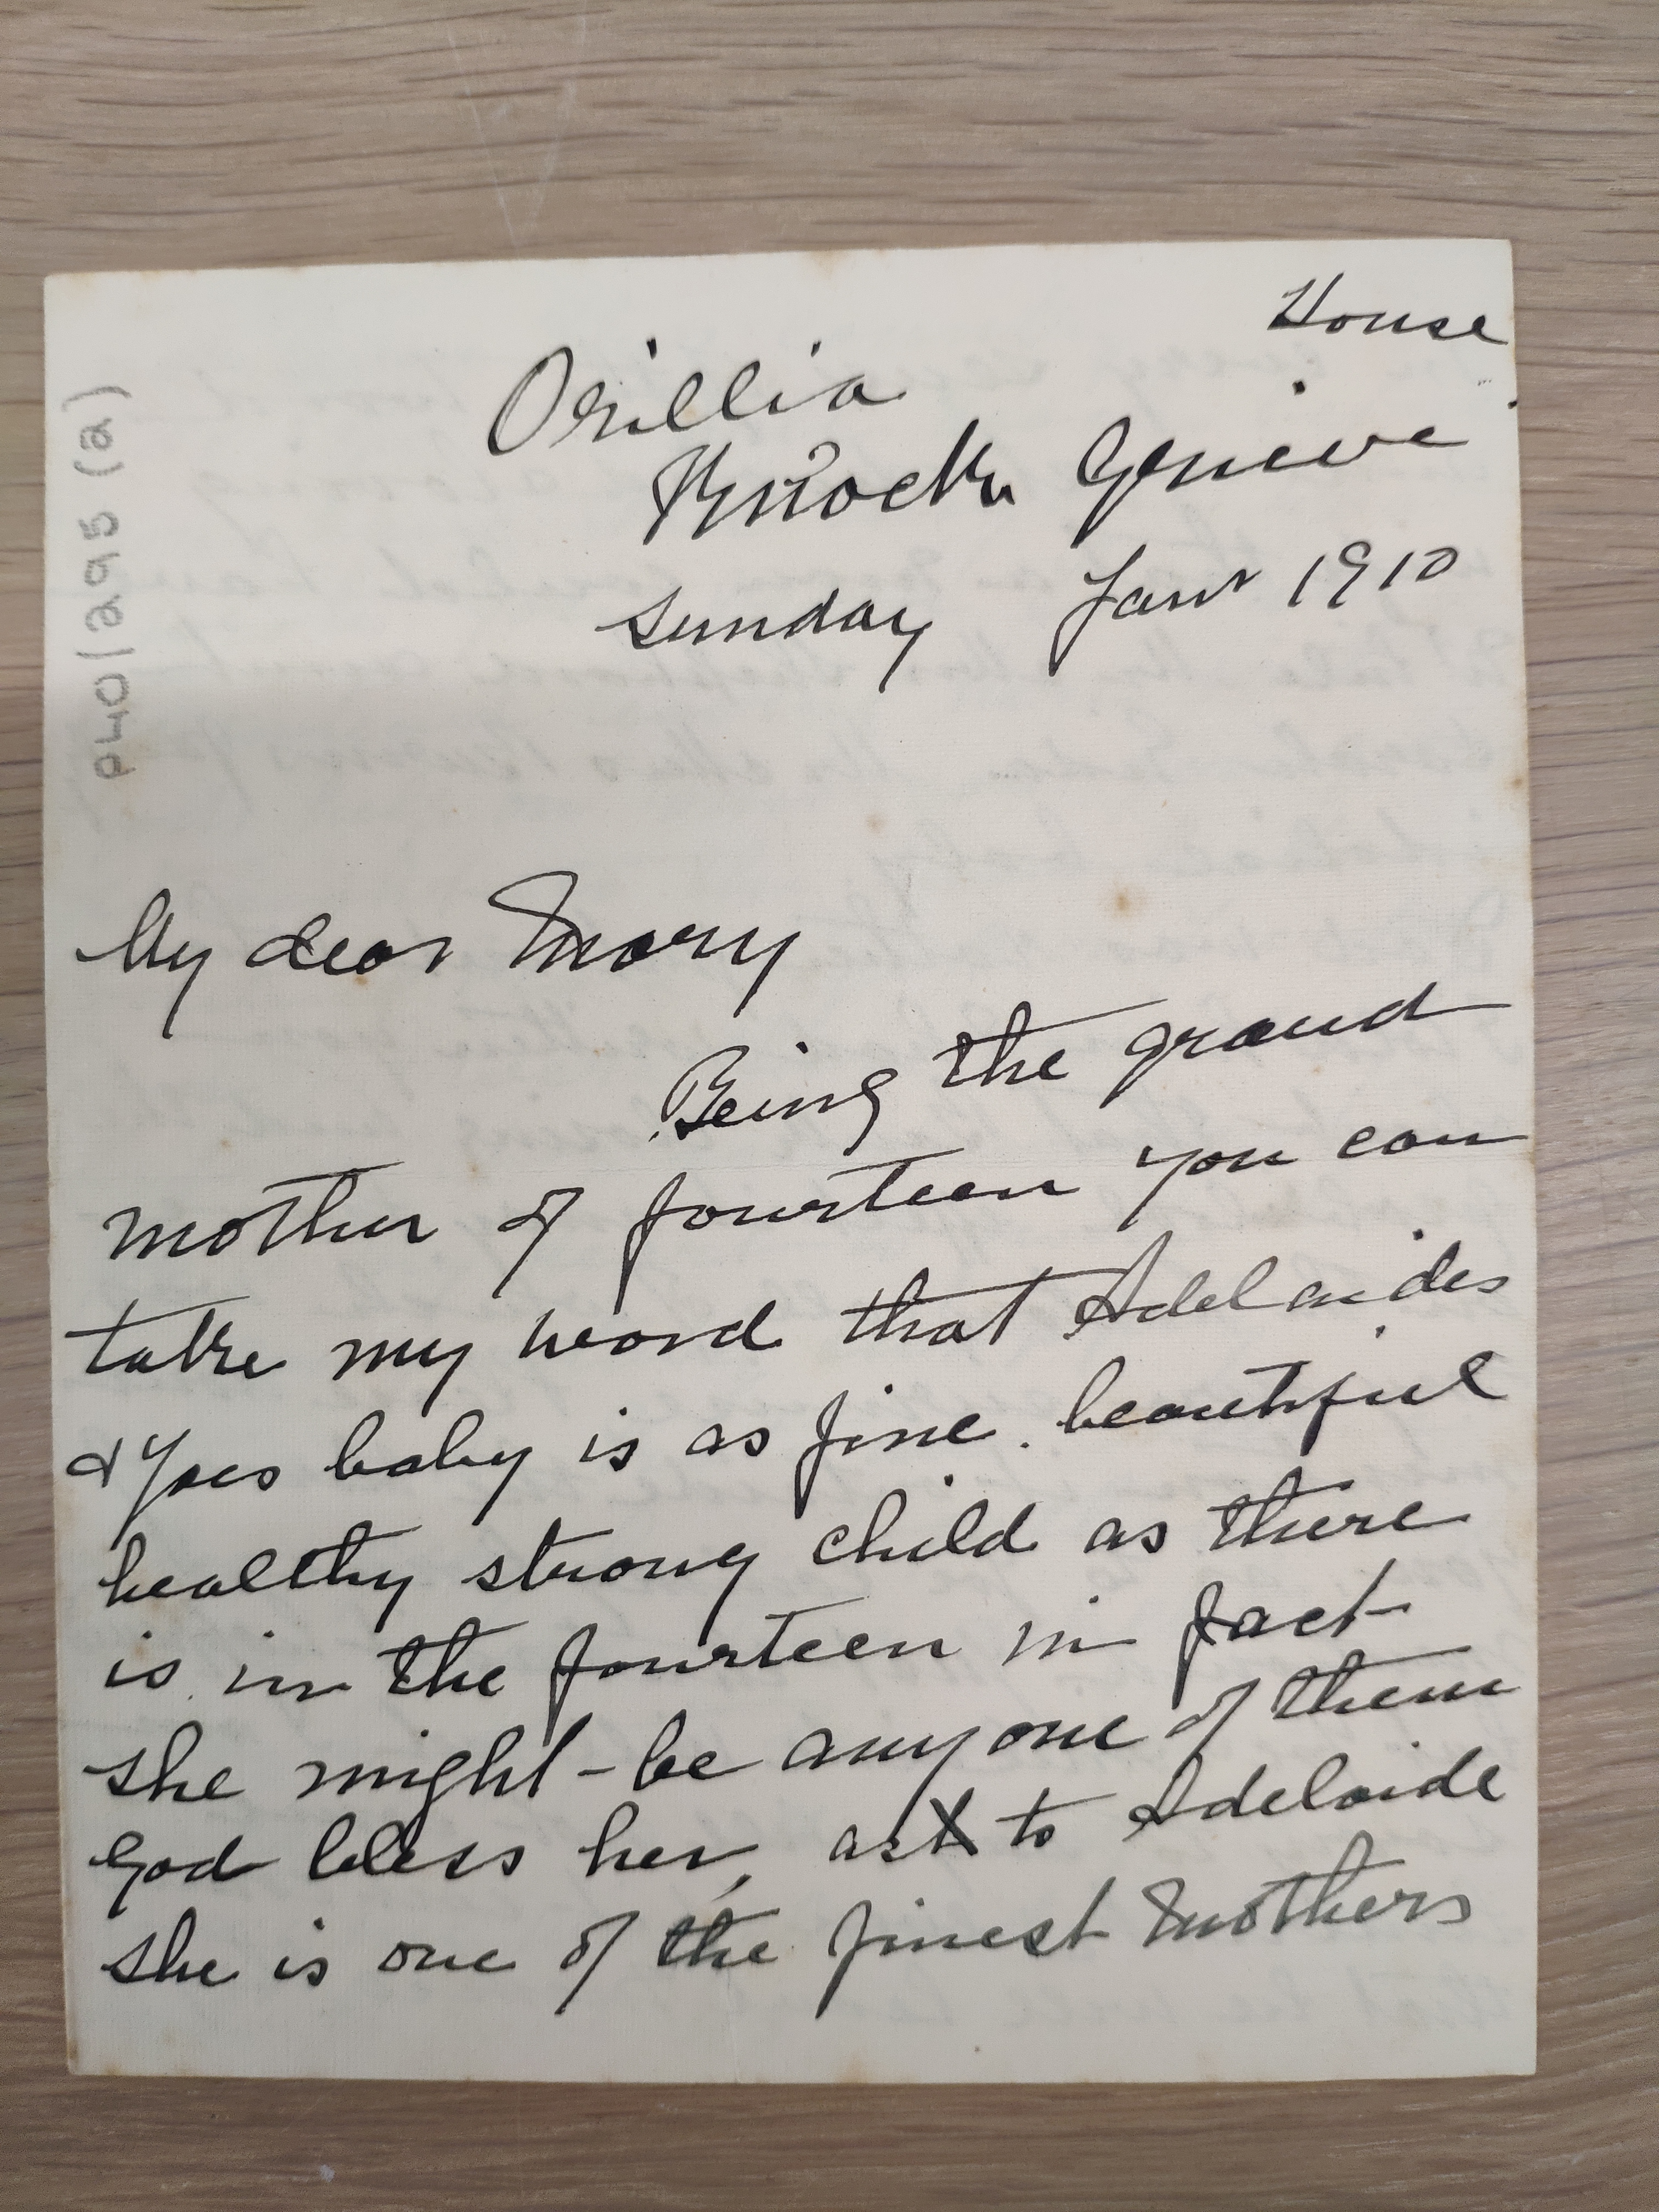 House
Orillia
Knock Geneve
Sunday Janr 1910
P40/295 (a)
My dear Mary
Being the grand
mother of fourteen you can
take my word that Adelaides
& Joes baby is as fine . beautiful
healthy strong child as there
is in the fourteen in fact
she might - be any one of them
God bless her, as to Adelaide
she is one of the finest Mothers